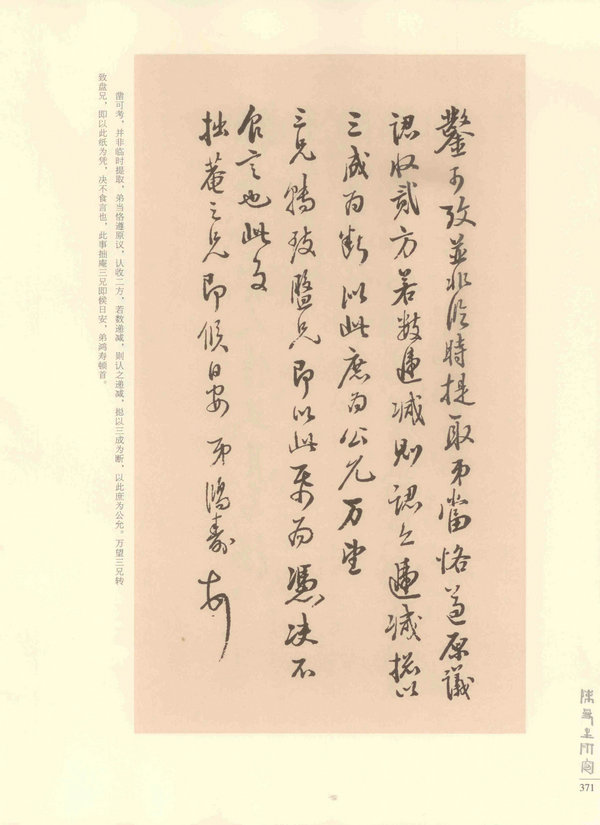 鑿可攷並非臨時提取弟當恪遵原議
認收貳方若數遞減則認亦遞減摠以
三成為斷以此庶為公允万望
三兄轉致盤兄即以此紙為憑決不
食言也此复
拙菴三兄即候日安 弟鴻壽頓首
凿可考，并非临时提取，弟当恪遵原议，认收二方，若数递减，则认之递减，摠以三成为断，以此庶为公允。万望三兄转
致盘兄，即以此纸为凭，决不食言也，此事拙庵三兄即候日安，弟鸿寿顿首。
371